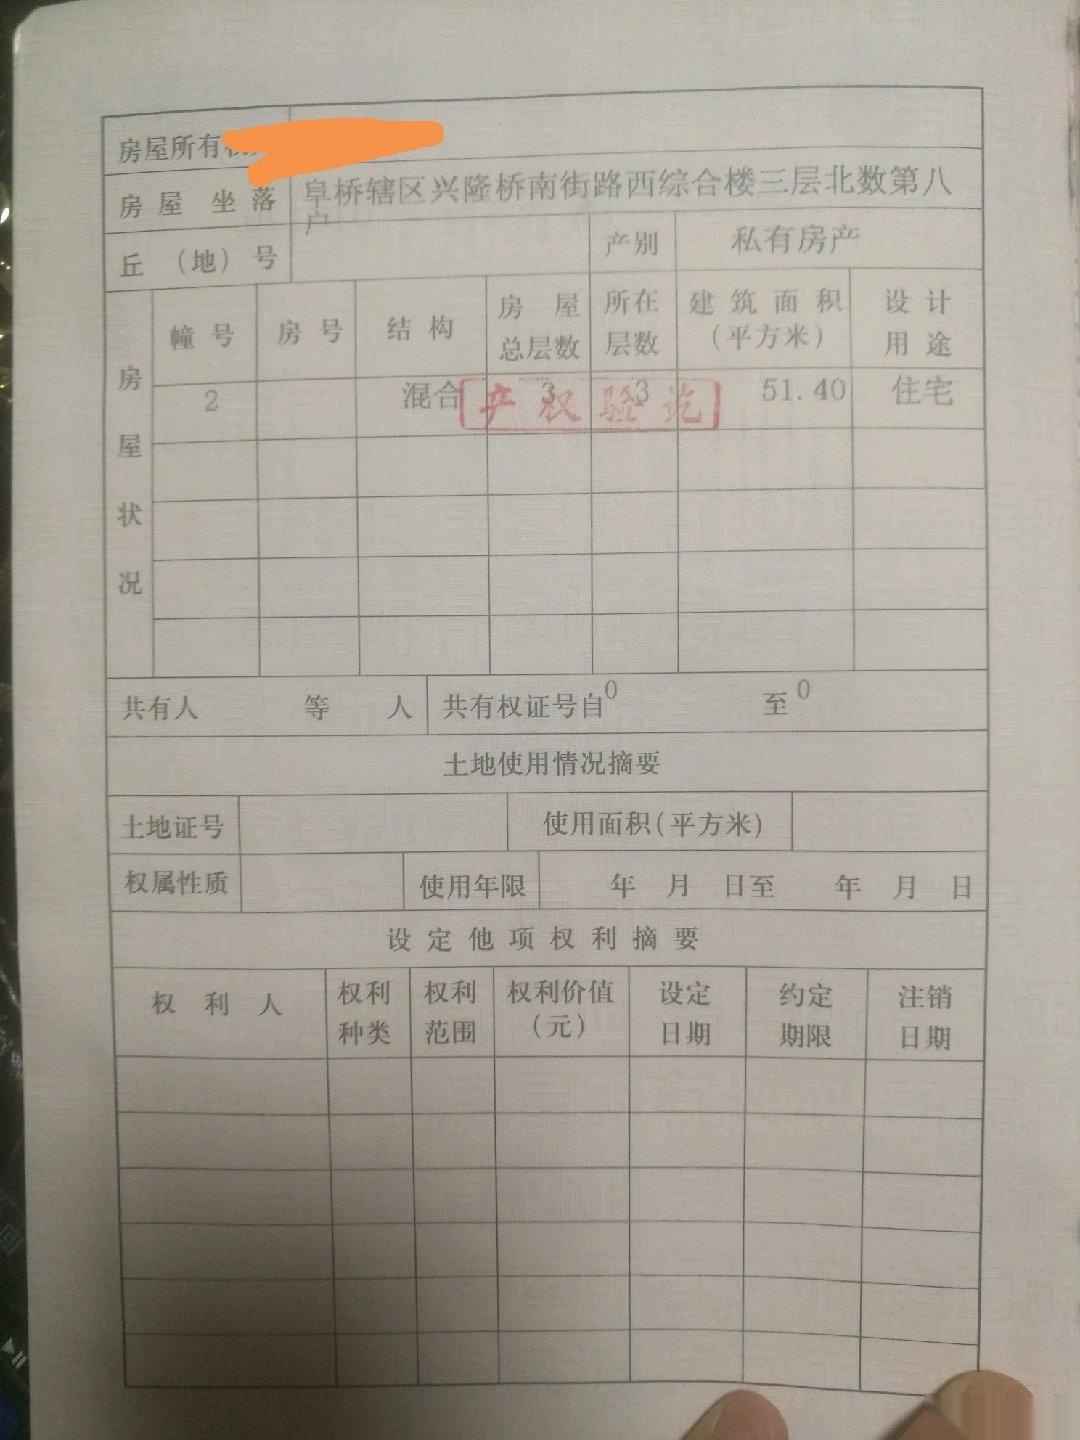 房屋所有
房屋坐落 阜桥辖区兴隆桥南街路西综合楼三层北数第八
户
丘（地）号 产别 私有房产
房屋状况
幢号 房号 结构 房屋总层数 所在层数 建筑面积（平方米） 设计用途
2 混合 3 3 51.40 住宅
产权验讫
共有人 等 人 共有权证号自0 至0
土地使用情况摘要
土地证号 使用面积(平方米)
权属性质 使用年限 年 月 日至 年 月 日
设定他项权利摘要
权利人 权利种类 权利范围 权利价值（元） 设定日期 约定期限 注销日期